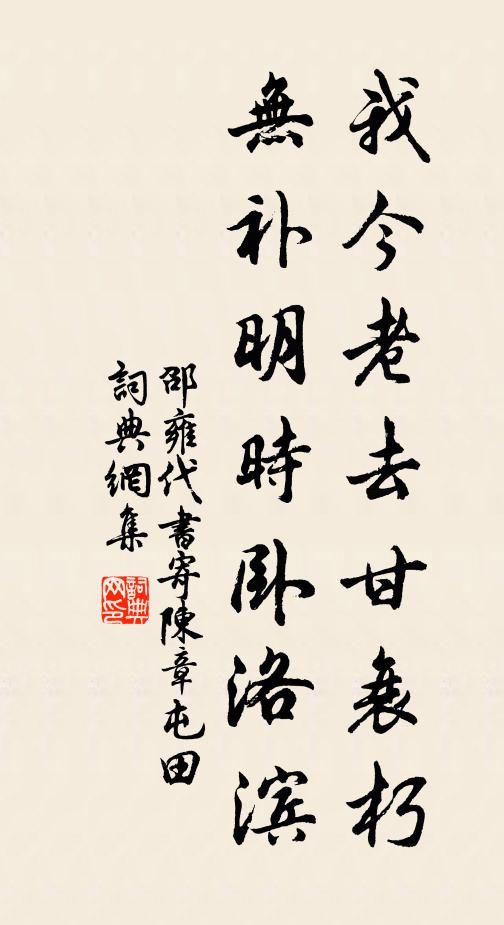 我今老去甘衰朽
無补明時卧洛滨
邵雍代書寄陳章屯田
詞典網集
詞典网印